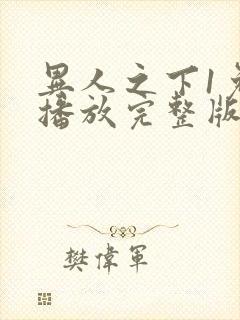 異人之下1免
播放完整版
樊偉軍